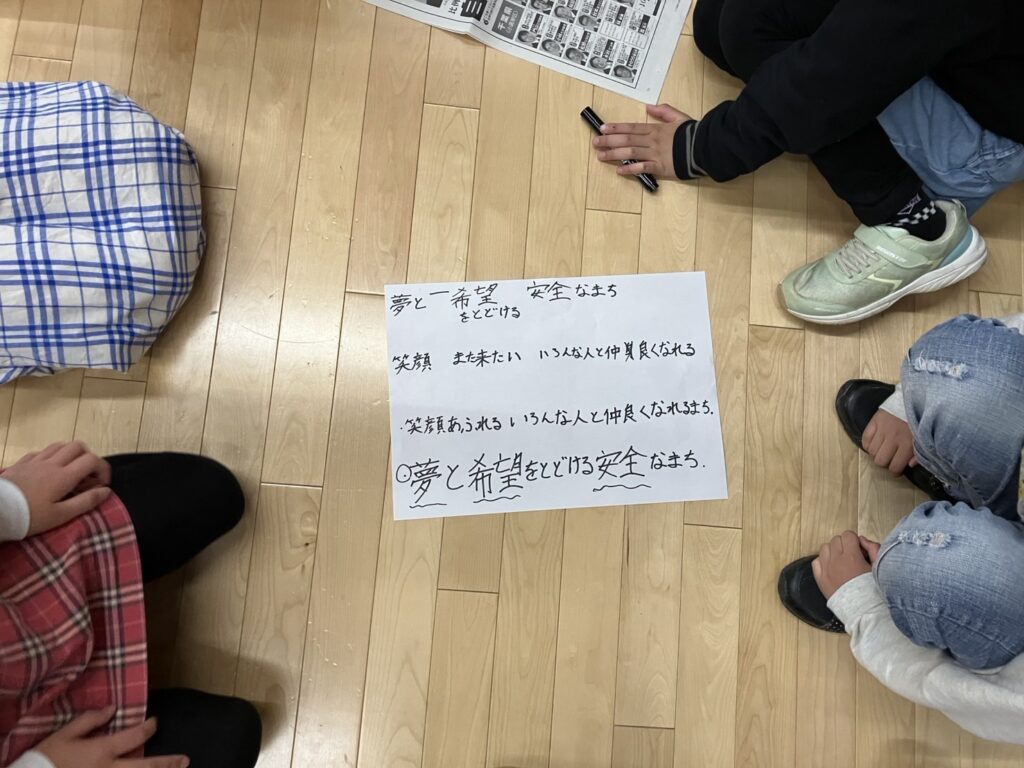 夢と一希望 安全なまち
をとどける
笑顔 また来たい いろんな人と仲良くなれる
・笑顔あふれる いろんな人と仲良くなれるまち.
○夢と希望をとどける安全なまち.